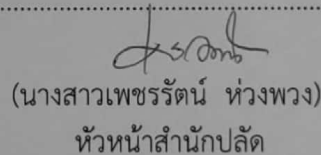 (นางสาวเพชรรัตน์ ห่วงพวง)
หัวหน้าสำนักปลัด